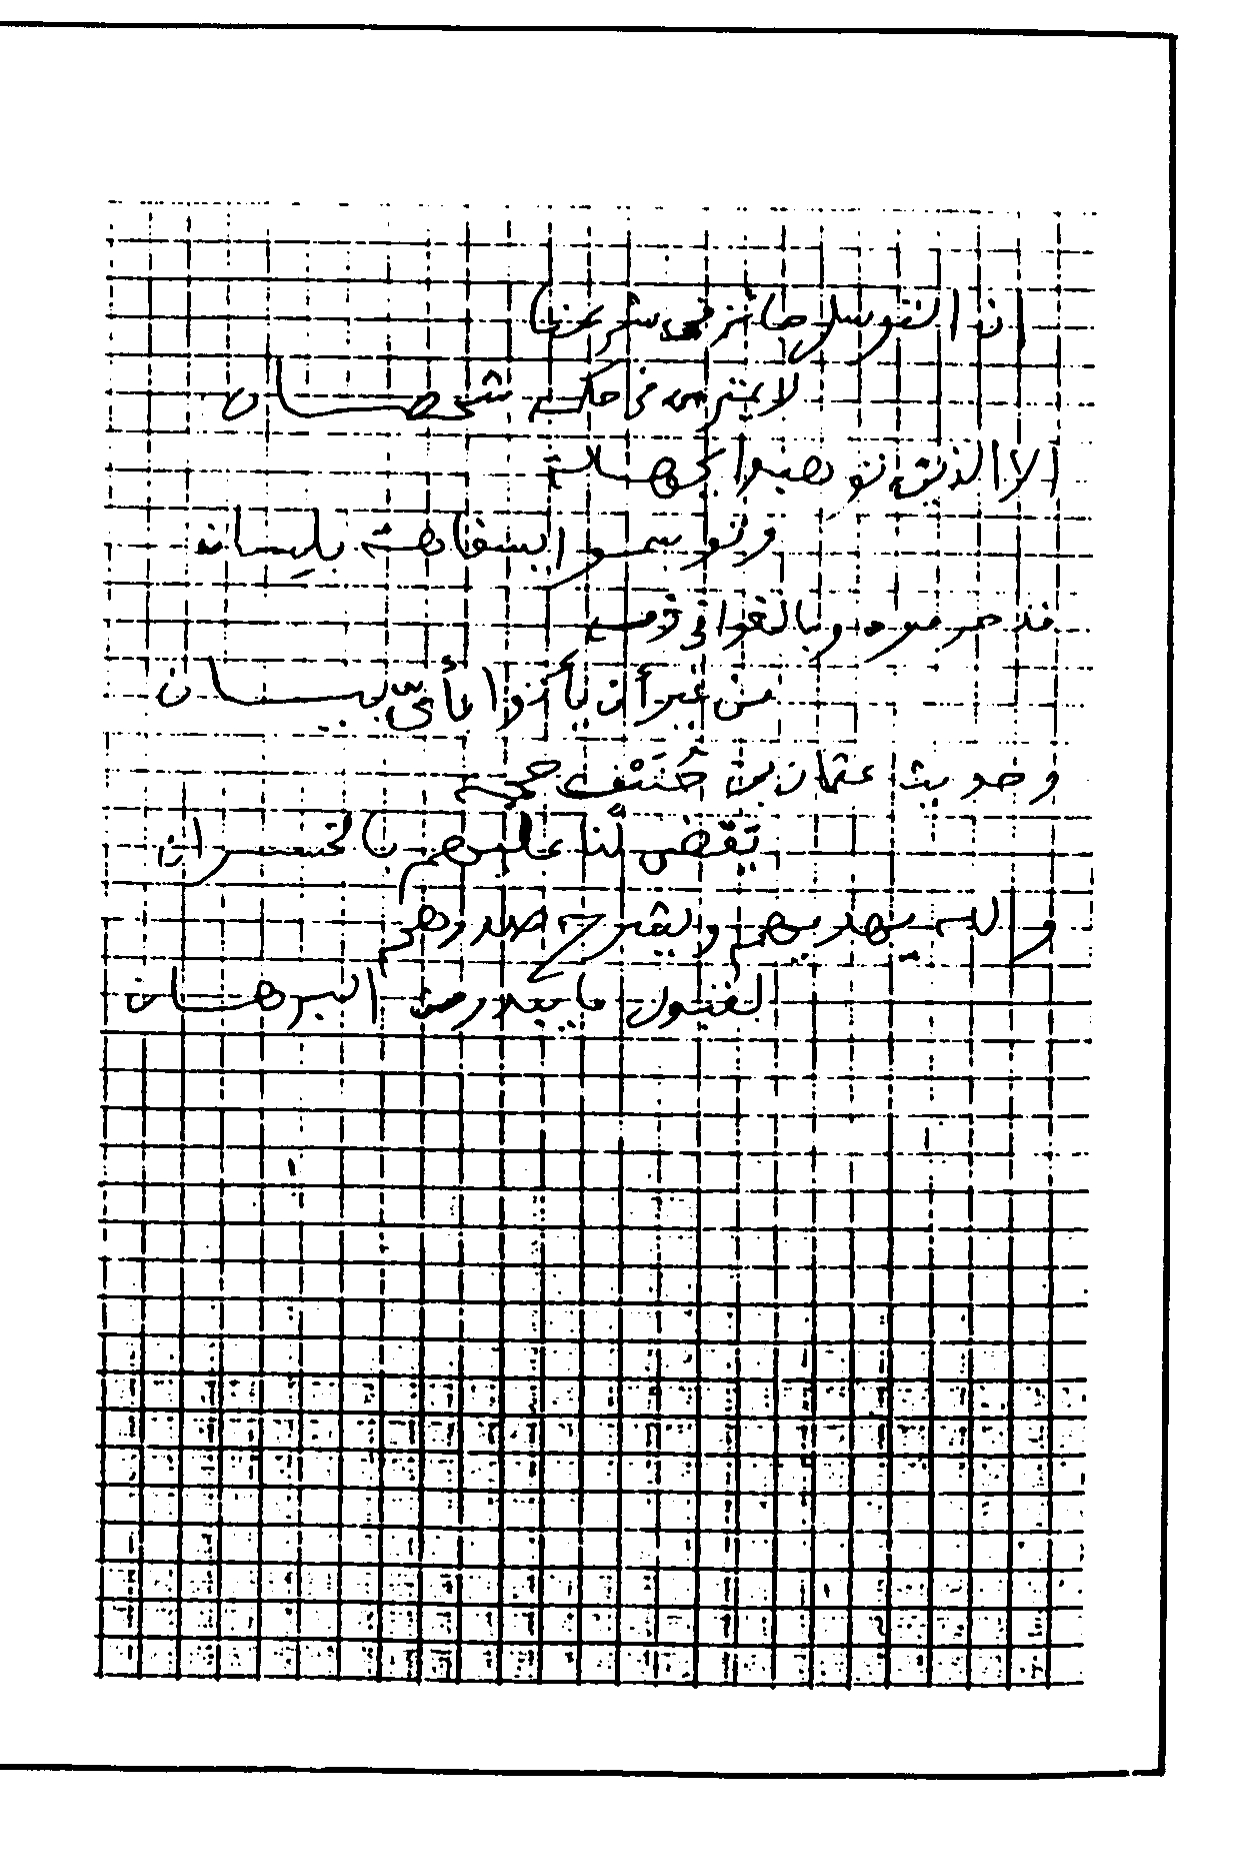 ان التوسل جائز في شرعنا
لا يمتري في حكمه شخصان
الا الذين توهبوا بجهالة
وتوا سموا السفاهة بلسان
قد حرموه وبالغوا في ذمه
من غير أن يأتوا بأيّ بيان
وحديث عثمان بن حُنَيْف حجة
تقضي لنا عليهم بالخسران
والله يهديهم ويشرح صدورهم
لقبول ما يبدو من البرهان